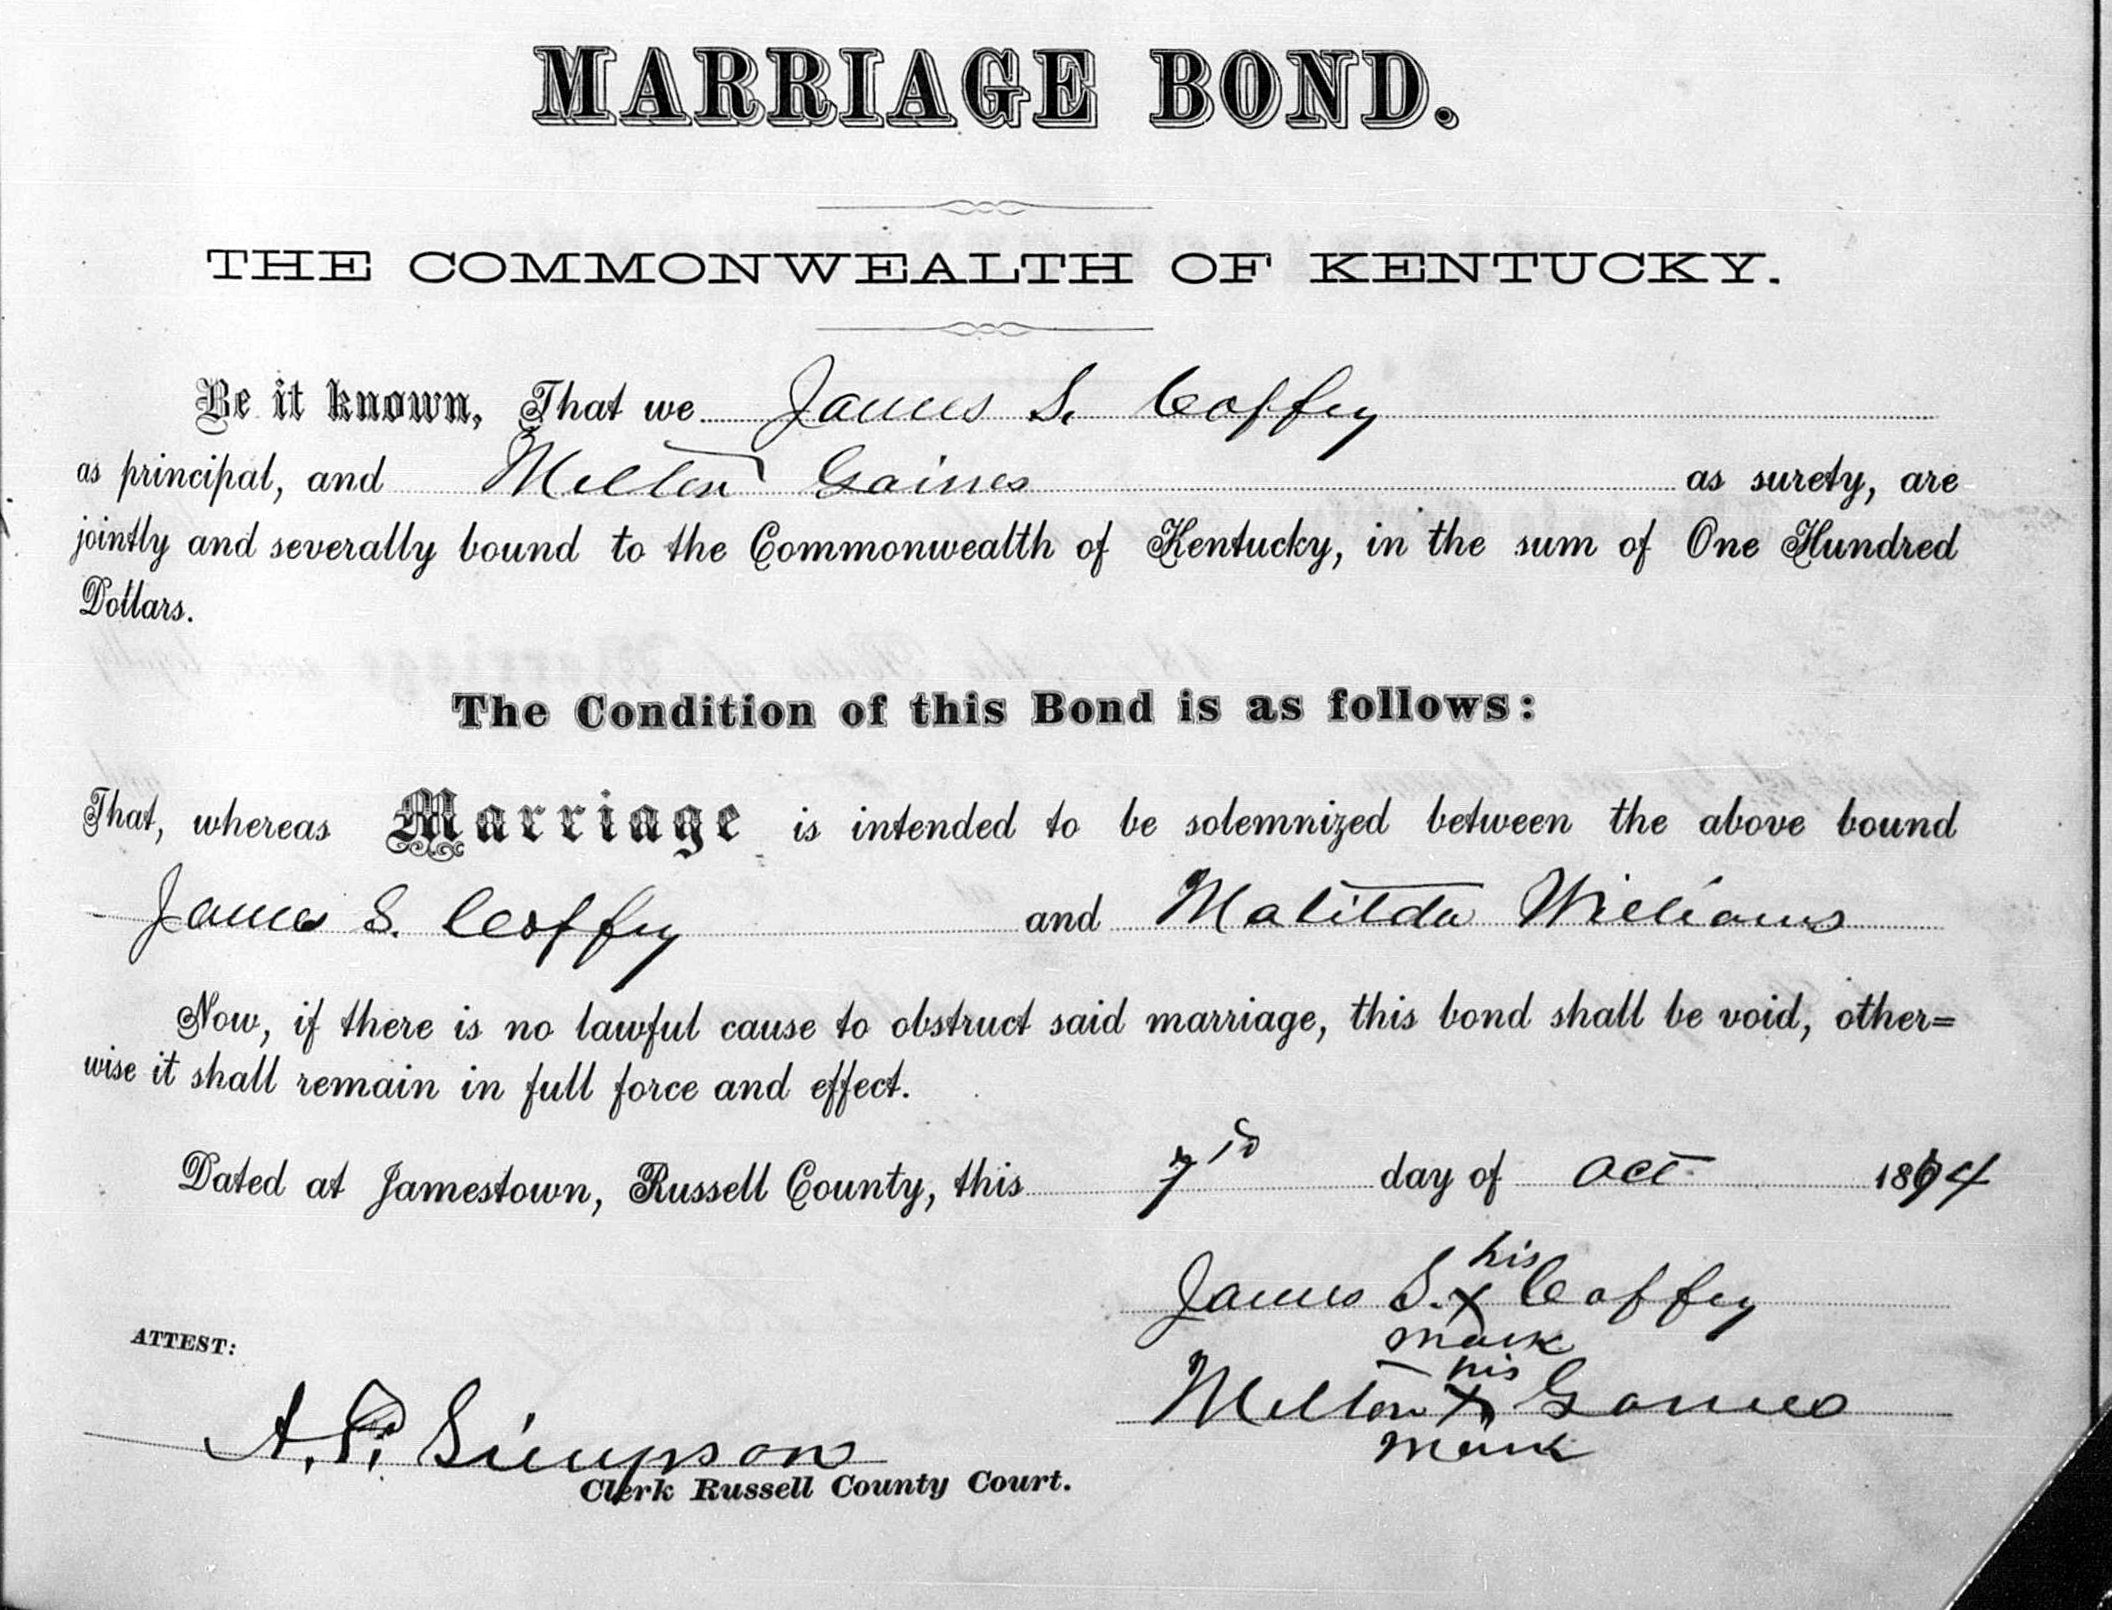 MARRIAGE BOND.
THE COMMONWEALTH OF KENTUCKY.
Be it known, That we James S. Coffey
as principal, and Milton Gaines as surety, are
jointly and severally bound to the Commonwealth of Kentucky, in the sum of One Hundred
Dollars.
The Condition of this Bond is as follows:
That, whereas Marriage is intended to be solemnized between the above bound
James S. Coffey and Matilda Williams
Now, if there is no lawful cause to obstruct said marriage, this bond shall be void, other=
wise it shall remain in full force and effect.
Dated at Jamestown, Russell County, this 7th day of Oct 1874
his
James S. x Coffey
mark
ATTEST:
his
Milton x Gaines
mark
A. P. Simpson
Clerk Russell County Court.